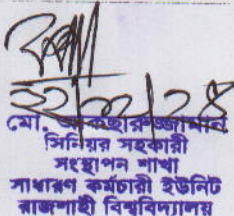 ২২/০২/২৪
মো.
সিনিয়র সহকারী
সংস্থাপন শাখা
সাধারণ কর্মচারী ইউনিট
রাজশাহী বিশ্ববিদ্যালয়